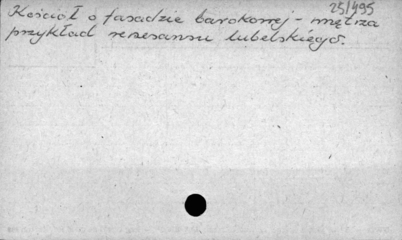 25/495
Kościół o fasadzie barokowej - wnętrza
przykład renesansu lubelskiego.